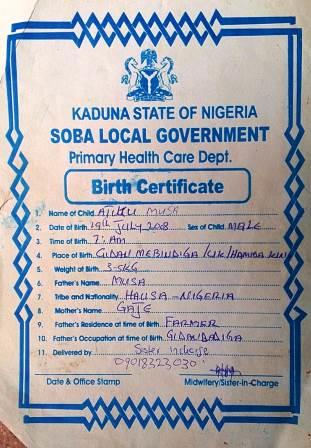 KADUNA STATE OF NIGERIA
SOBA LOCAL GOVERNMENT
Primary Health Care Dept.
Birth Certificate
1. Name of Child MUSA
2. Date of Birth 19th JULY 2008 Sex of Child MALE
3. Time of Birth 7:AM
4. Place of Birth GIDAN
5. Weight of Birth 3-5KG
6. Father's Name MUSA
7. Tribe and Nationality HAUSA-NIGERIA
8. Mother's Name GAJE
9. Father's Residence at time of Birth FARMER
10. Father's Occupation at time of Birth
11. Delivered by Sister incharge
09018323030
Date & Office Stamp Midwifery/Sister-in-Charge